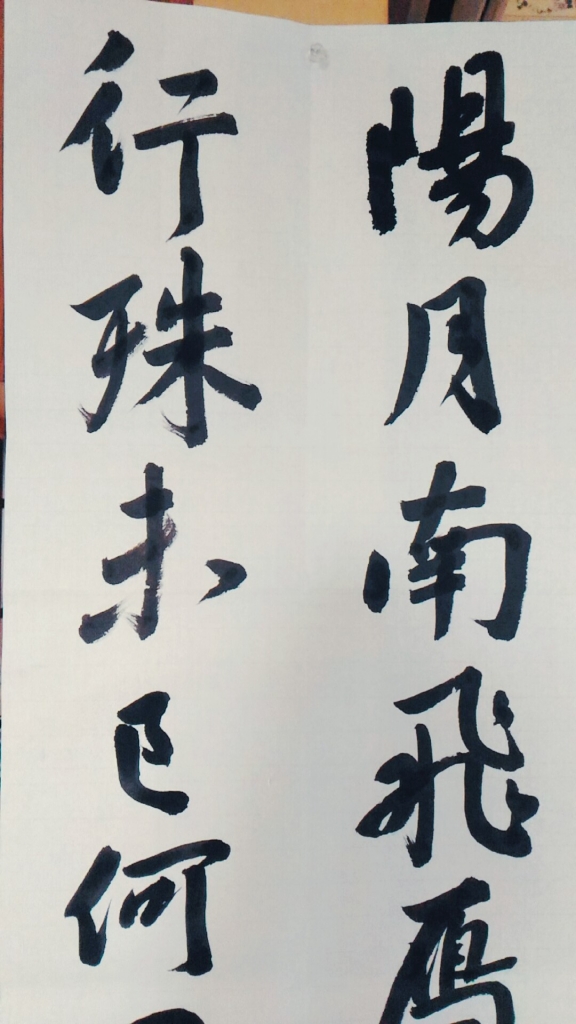 陽月南飛雁
行殊未已何